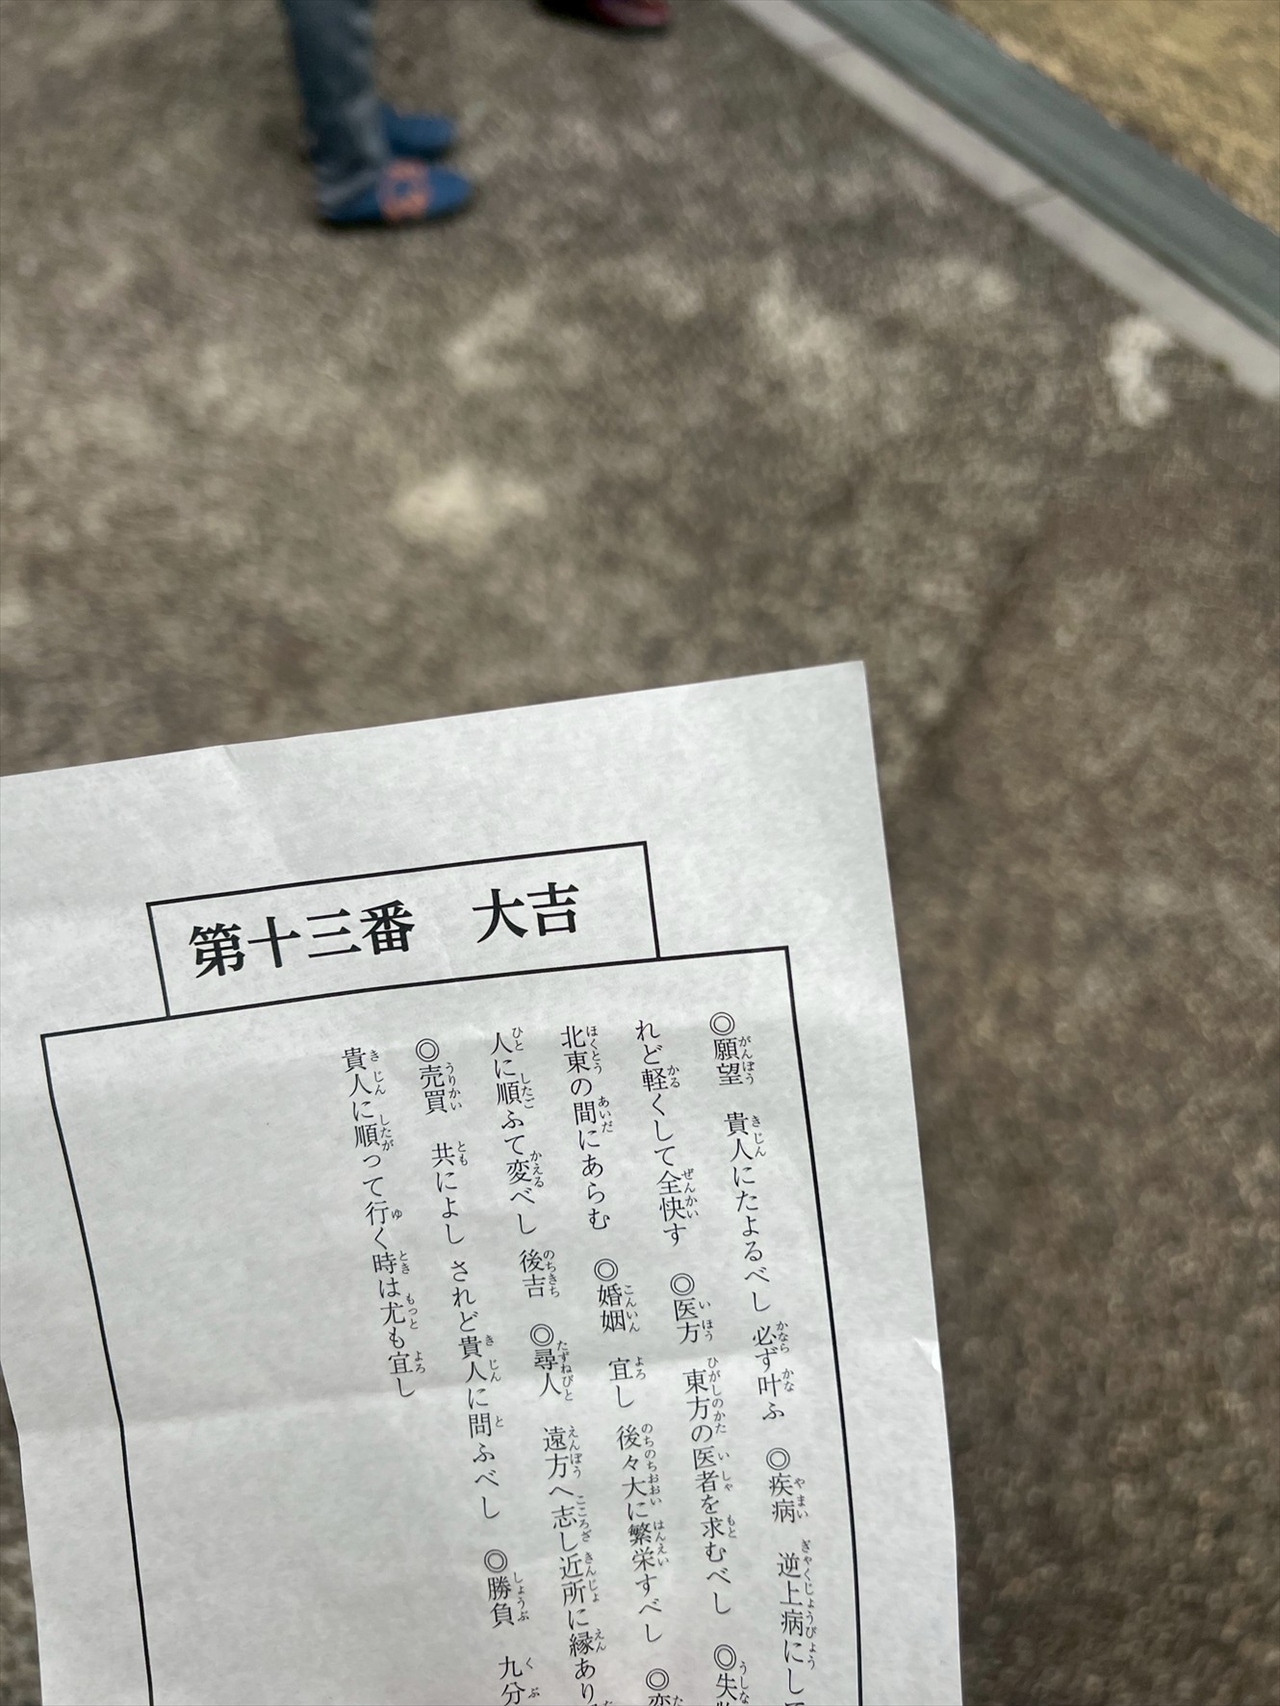 第十三番　大吉
◎願望　貴人にたよるべし 必ず叶ふ　◎疾病　逆上病にして
れど軽くして全快す　◎医方　東方の医者を求むべし　◎失
北東の間にあらむ　◎婚姻　宜し 後々大に繁栄すべし　◎変
人に順ふて変べし 後吉　◎尋人　遠方へ志し近所に縁あり
◎売買　共によし されど貴人に問ふべし　◎勝負　九分
貴人に順って行く時は尤も宜し